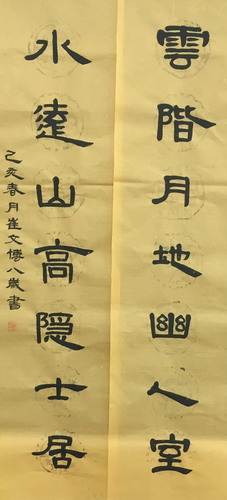 雲階月地幽人室
水遠山高隐士居
己亥春月崔文博八歲書